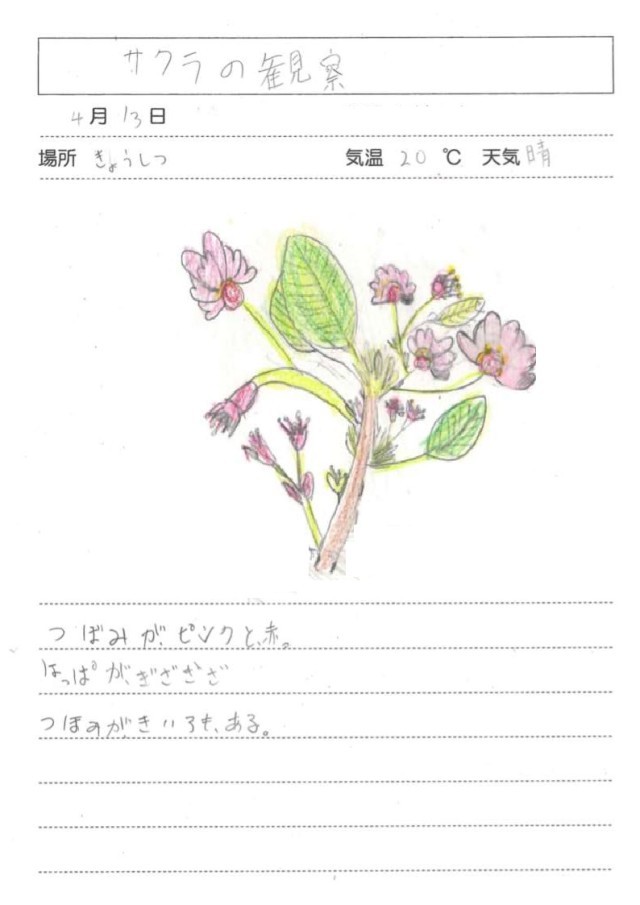 サクラの観察
4月13日
場所 きょうしつ 気温 20 ℃ 天気 晴
つぼみがピンクと、赤。
はっぱがぎざぎざ
つぼみがきいろも、ある。